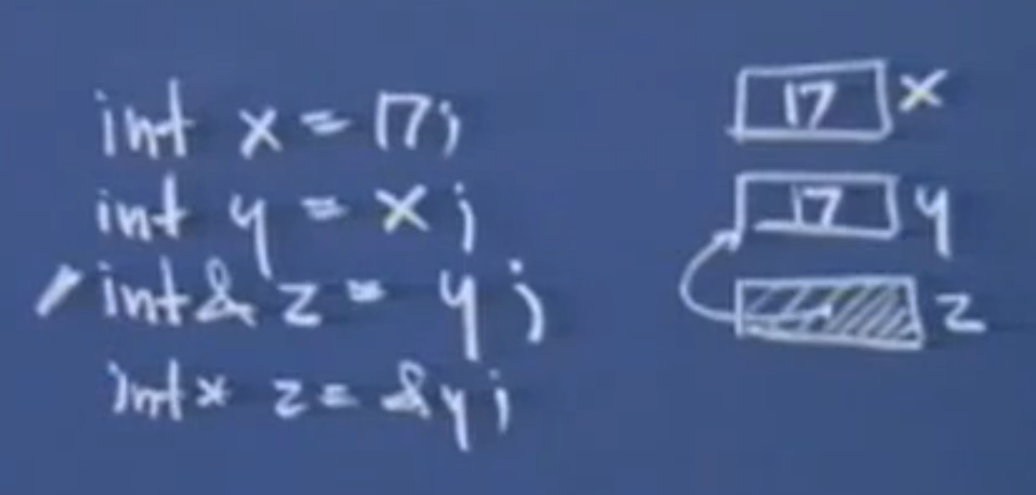 int x = 17;
int y = x;
int& z = y;
int* z = &y;
17 x
17 y
z